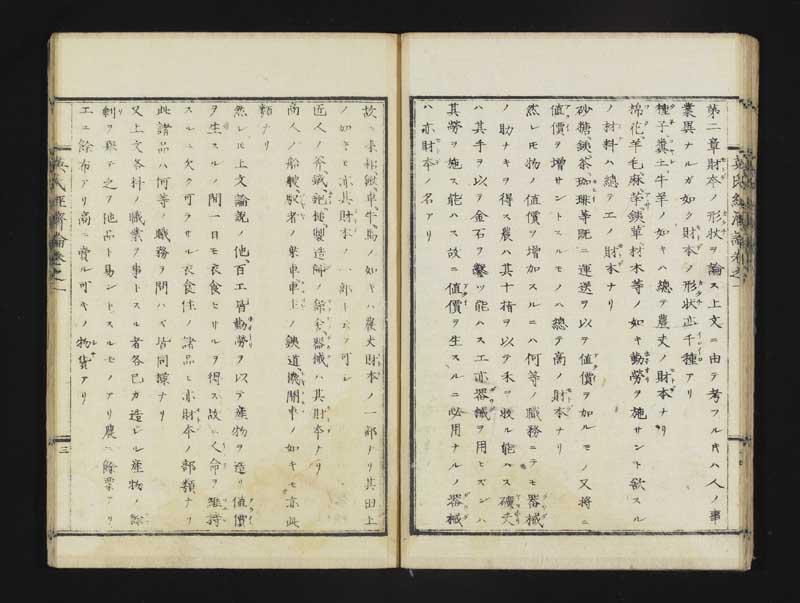 第二章財本ノ形状ヲ論ス上文ニ由テ考フル片ハ人ノ事
業異ナルガ如ク財本ノ形状亦千種アリ
種子糞土牛羊ノ如キハ總テ農丈ノ財本ナリ
棉花羊毛麻苧鉄草材木等ノ如キ勤勞ヲ施サント欲スル
ノ材料ハ總テ工ノ財本ナリ
砂糖鉄茶珈琲等既ニ運送ヲ以テ値價ヲ加ルモノ又將ニ
値價ヲ增サントスルモノハ總テ商ノ財本ナリ
然レ𪜈物ノ値價ヲ増加スルニハ何等ノ職務ニテモ器械
ノ助ナキヲ得ス農ハ其十指ヲ以テ禾ヲ收ル能ハス礦夫
ハ其手ヲ以テ金石ヲ鑿ツ能ハス工亦器械ヲ用ヒズンハ
其勞ヲ施ス能ハス故ニ値價ヲ生スルニ必用ナルノ器械
ハ亦財本ノ名アリ
故ニ耒耜鍬車牛馬ノ如キハ農丈財本ノ一部ナリ其田上
ノ如キモ亦其財本ノ一部ト云フ可シ
匠人ノ斧鐵砲製造師ノ器械ハ其財本ナリ
商人ノ船馭者ノ乗車車主ノ鉄道機關車ノ如キモ亦此
類ナリ
然レ𪜈上文論説ノ他百工皆勤勞ヲ以テ産物ヲ造リ値價
ヲ生スルノ間一日モ衣食セサルヲ得ス故ニ人命ヲ維持
スルニ欠ク可ラサル衣食住ノ諸品モ亦財本ノ部類ナリ
此諸品ハ何等ノ職務ヲ問ハズ皆同様ナリ
又上文各種ノ職業ヲ事トスル者各己カ造レル産物ノ餘
剰ヲ與テ之ヲ他品ト易ントスルモノアリ農ニ餘粟アリ
工ニ餘布アリ商ニ賣ル可キノ物貨アリ
英氏経済論巻之一
三
英氏経済論巻之一